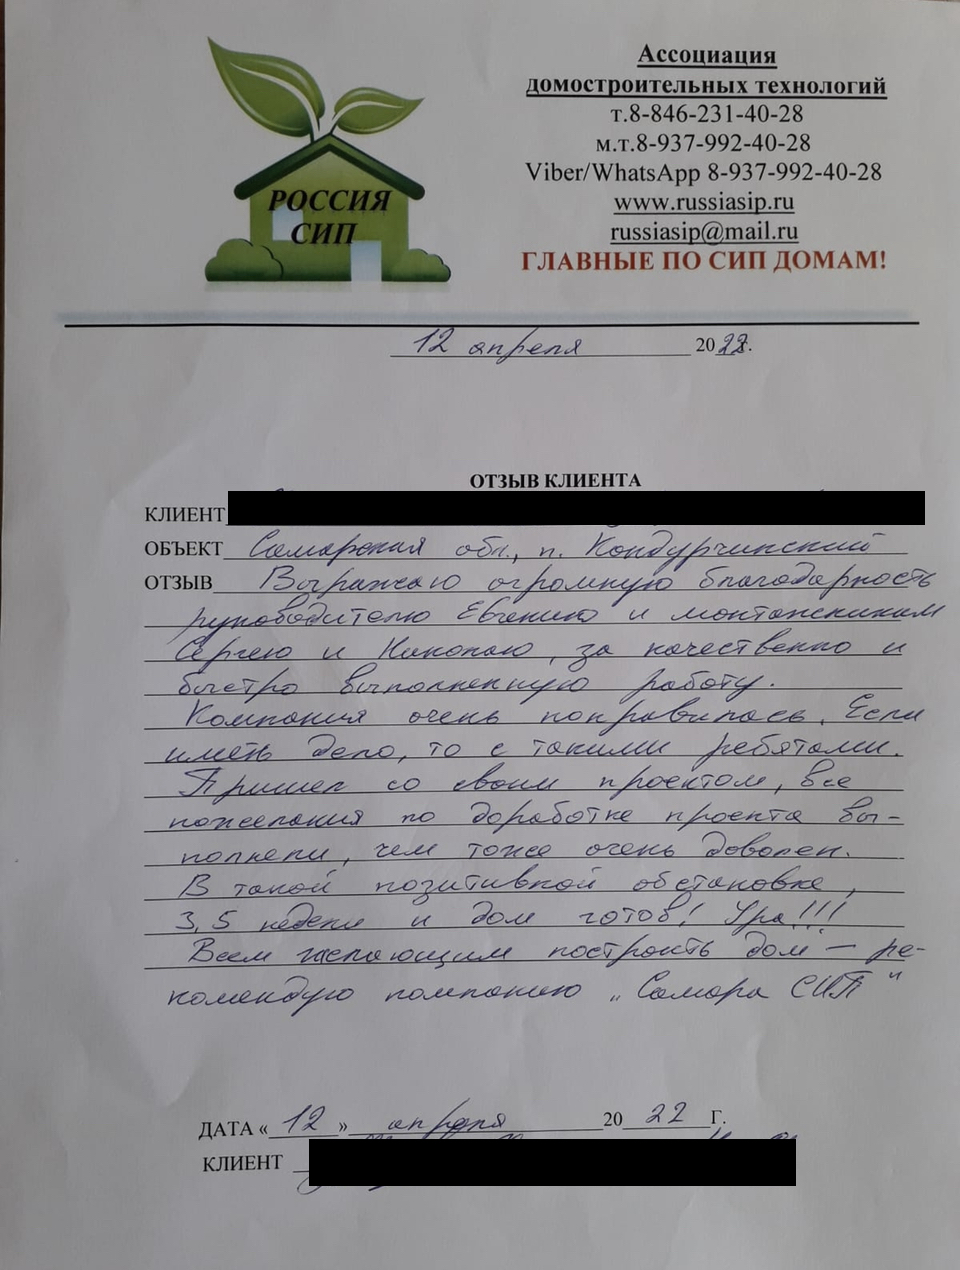 РОССИЯ
СИП
Ассоциация
домостроительных технологий
т.8-846-231-40-28
м.т.8-937-992-40-28
Viber/WhatsApp 8-937-992-40-28
www.russiasip.ru
russiasip@mail.ru
ГЛАВНЫЕ ПО СИП ДОМАМ!
12 апреля 2022г.
ОТЗЫВ КЛИЕНТА
КЛИЕНТ
ОБЪЕКТ Самарская обл., п. Кондурчинский
ОТЗЫВ Выражаю огромную благодарность
руководителю Евгению и монтажникам
Сергею и Николаю, за качественно и
быстро выполненную работу.
Компания очень понравилась. Если
иметь дело, то с такими ребятами.
Пришел со своим проектом, все
пожелания по доработке проекта вы-
полнели, чем тоже очень доволен.
В такой позитивной обстановке,
3,5 недели и дом готов! Ура!!!
Всем желающим построить дом — ре-
комендую компанию „Самара СИП"
ДАТА « 12 » апреля 20 22 Г.
КЛИЕНТ